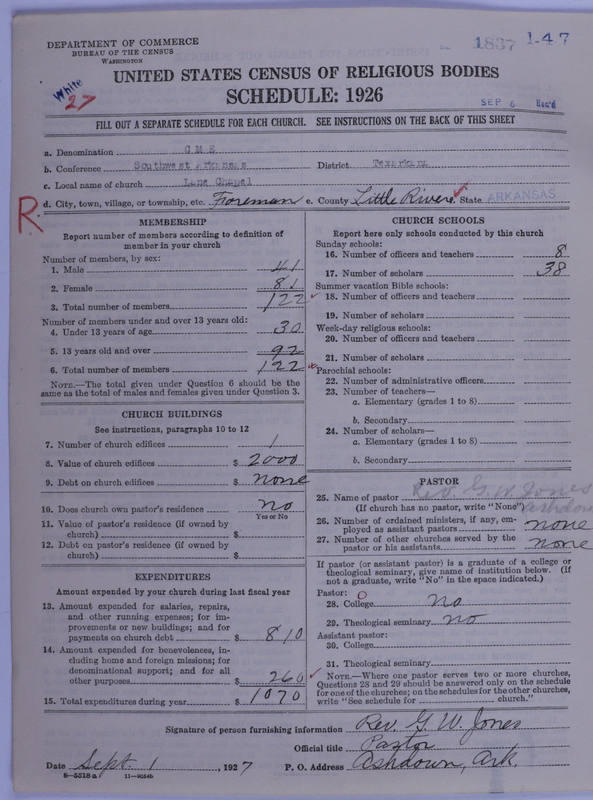 DEPARTMENT OF COMMERCE
BUREAU OF THE CENSUS
WASHINGTON
1837 1-47
White
27
UNITED STATES CENSUS OF RELIGIOUS BODIES
SCHEDULE: 1926
SEP 6 Rec'd
FILL OUT A SEPARATE SCHEDULE FOR EACH CHURCH. SEE INSTRUCTIONS ON THE BACK OF THIS SHEET
a. Denomination C M E
b. Conference Southwest Arkansas District Texarkana
c. Local name of church Lane Chapel
R d. City, town, village, or township, etc. Foreman e. County Little River State ARKANSAS
MEMBERSHIP
Report number of members according to definition of
member in your church
Number of members, by sex:
1. Male 41
2. Female 81
3. Total number of members 122
Number of members under and over 13 years old:
4. Under 13 years of age 30
5. 13 years old and over 92
6. Total number of members 122
NOTE.—The total given under Question 6 should be the
same as the total of males and females given under Question 3.
CHURCH BUILDINGS
See instructions, paragraphs 10 to 12
7. Number of church edifices 1
8. Value of church edifices $ 2000
9. Debt on church edifices $ none
10. Does church own pastor's residence no
Yes or No
11. Value of pastor's residence (if owned by
church) $
12. Debt on pastor's residence (if owned by
church) $
EXPENDITURES
Amount expended by your church during last fiscal year
13. Amount expended for salaries, repairs,
and other running expenses; for im-
provements or new buildings; and for
payments on church debt $ 810
14. Amount expended for benevolences, in-
cluding home and foreign missions; for
denominational support; and for all
other purposes $ 260
15. Total expenditures during year $ 1070
CHURCH SCHOOLS
Report here only schools conducted by this church
Sunday schools:
16. Number of officers and teachers 8
17. Number of scholars 38
Summer vacation Bible schools:
18. Number of officers and teachers
19. Number of scholars
Week-day religious schools:
20. Number of officers and teachers
21. Number of scholars
Parochial schools:
22. Number of administrative officers
23. Number of teachers—
a. Elementary (grades 1 to 8)
b. Secondary
24. Number of scholars—
a. Elementary (grades 1 to 8)
b. Secondary
PASTOR
25. Name of pastor Rev. G. W. Jones
(If church has no pastor, write "None") Ashdown
26. Number of ordained ministers, if any, em-
ployed as assistant pastors none
27. Number of other churches served by the
pastor or his assistants none
If pastor (or assistant pastor) is a graduate of a college or
theological seminary, give name of institution below. (If
not a graduate, write "No" in the space indicated.)
Pastor: 0
28. College no
29. Theological seminary no
Assistant pastor:
30. College
31. Theological seminary
NOTE.—Where one pastor serves two or more churches,
Questions 28 and 29 should be answered only on the schedule
for one of the churches; on the schedules for the other churches,
write "See schedule for church."
Signature of person furnishing information Rev. G. W. Jones
Official title Pastor
Date Sept. 1, 1927 P. O. Address Ashdown, Ark.